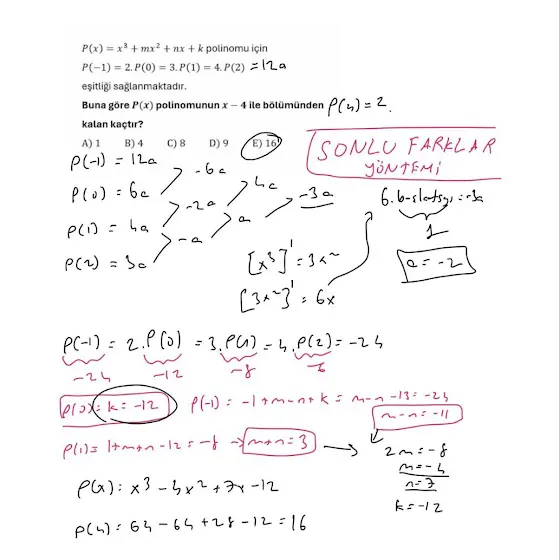 P(x) = x³ + mx² + nx + k polinomu için
P(−1) = 2.P(0) = 3.P(1) = 4.P(2) = 12a
eşitliği sağlanmaktadır.
Buna göre P(x) polinomunun x − 4 ile bölümünden P(4) = ?
kalan kaçtır?
A) 1 B) 4 C) 8 D) 9 E) 16
SONLU FARKLAR
YÖNTEMİ
P(-1) = 12a
-6a
P(0) = 6a
4a
-2a
-3a
P(1) = 4a
a
-a
P(2) = 3a
6. b-katsayı = -3a
1
a = -2
[x³]' = 3x²
[3x²]' = 6x
P(-1) = 2.P(0) = 3.P(1) = 4.P(2) = -24
-24 -12 -8 -6
P(0) = k = -12 P(-1) = -1+m-n+k = m-n-13 = -24
m-n = -11
P(1) = 1+m+n-12 = -8 → m+n = 3
2m = -8
m = -4
n = 7
k = -12
P(x) = x³ - 4x² + 7x - 12
P(4) = 64 - 64 + 28 - 12 = 16